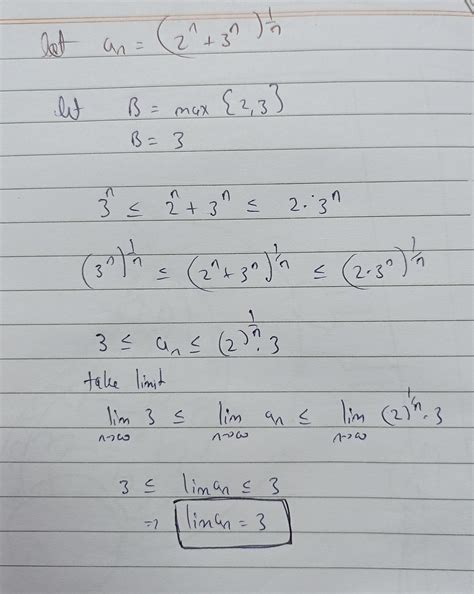 let aₙ = (2ⁿ + 3ⁿ)^(1/n)
let B = max {2,3}
B = 3
3ⁿ ≤ 2ⁿ + 3ⁿ ≤ 2·3ⁿ
(3ⁿ)^(1/n) ≤ (2ⁿ + 3ⁿ)^(1/n) ≤ (2·3ⁿ)^(1/n)
3 ≤ aₙ ≤ (2)^(1/n)·3
take limit
lim n→∞ 3 ≤ lim n→∞ aₙ ≤ lim n→∞ (2)^(1/n)·3
3 ≤ lim aₙ ≤ 3
⇒ lim aₙ = 3